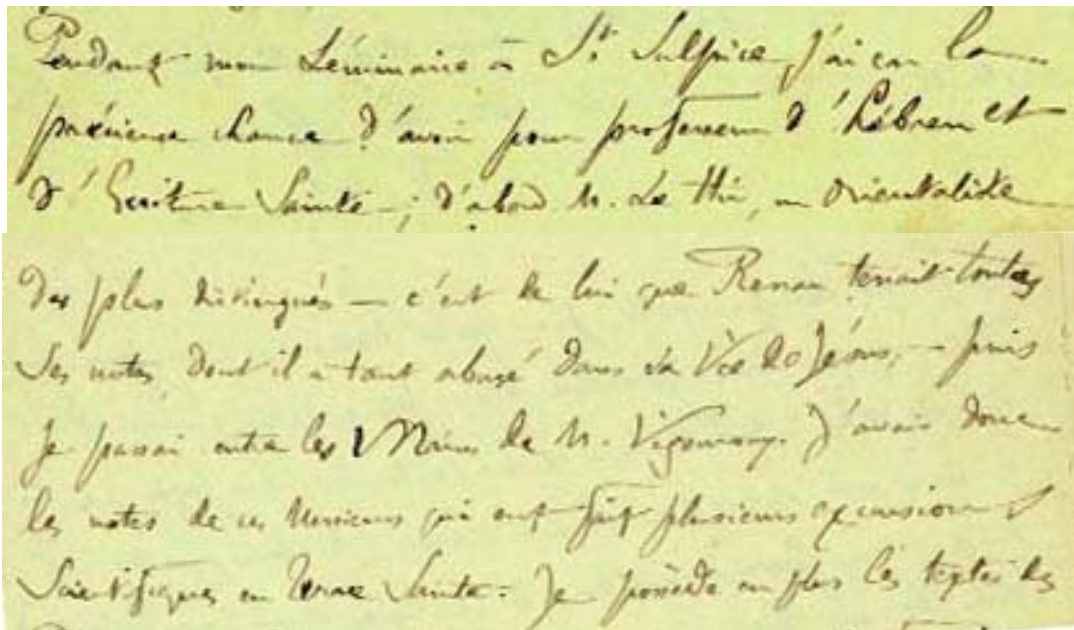 Pendant mon Séminaire à St Sulpice, j'ai eu la
précieuse chance d'avoir pour professeur d'Hébreu et
d'Ecriture Sainte ; d'abord M. Le Hir, un orientaliste
des plus distingués — c'est de lui que Renan tenait toutes
ses notes, dont il a tant abusé dans sa Vie de Jésus, — puis
je passai entre les Mains de M. Vigouroux. J'avais donc
les notes de ces Messieurs qui ont fait plusieurs excursions
Scientifiques en Terre Sainte. Je possède en plus les textes des